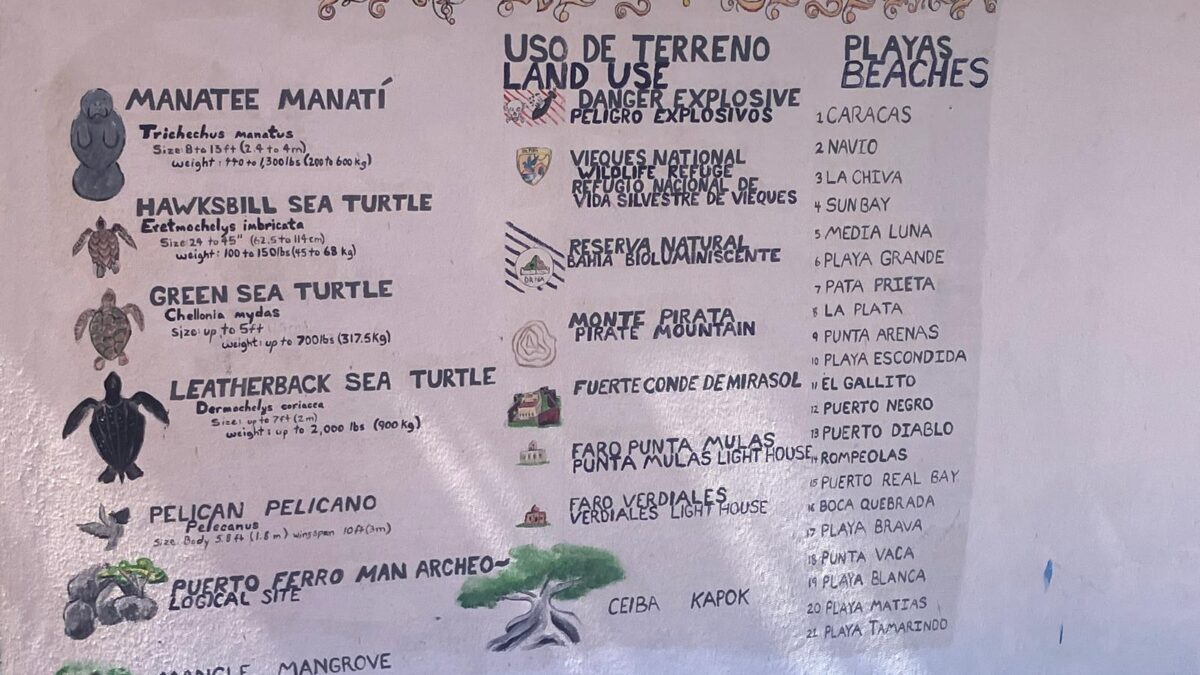 MANATEE MANATÍ
Trichechus manatus
Size: 8 to 13ft (2.4 to 4m)
weight: 440 to 1,300lbs (200 to 600kg)
HAWKSBILL SEA TURTLE
Eretmochelys imbricata
Size: 24 to 45" (62.5 to 114cm)
weight: 100 to 150lbs (45 to 68 kg)
GREEN SEA TURTLE
Chellonia mydas
Size: up to 5ft
weight: up to 700lbs (317.5kg)
LEATHERBACK SEA TURTLE
Dermochelys coriacea
Size: up to 7ft (2m)
weight: up to 2,000 lbs (900 kg)
PELICAN PELICANO
Pelecanus
Size: Body 5.8ft (1.8m) wingspan 10ft (3m)
PUERTO FERRO MAN ARCHEO~
LOGICAL SITE
MANGLE MANGROVE
USO DE TERRENO
LAND USE
DANGER EXPLOSIVE
PELIGRO EXPLOSIVOS
VIEQUES NATIONAL
WILDLIFE REFUGE
REFUGIO NACIONAL DE
VIDA SILVESTRE DE VIEQUES
RESERVA NATURAL
BAHIA BIOLUMINISCENTE
DRNA
MONTE PIRATA
PIRATE MOUNTAIN
FUERTE CONDE DE MIRASOL
FARO PUNTA MULAS
PUNTA MULAS LIGHT HOUSE
FARO VERDIALES
VERDIALES LIGHT HOUSE
CEIBA KAPOK
PLAYAS
BEACHES
1 CARACAS
2 NAVIO
3 LA CHIVA
4 SUN BAY
5 MEDIA LUNA
6 PLAYA GRANDE
7 PATA PRIETA
8 LA PLATA
9 PUNTA ARENAS
10 PLAYA ESCONDIDA
11 EL GALLITO
12 PUERTO NEGRO
13 PUERTO DIABLO
14 ROMPEOLAS
15 PUERTO REAL BAY
16 BOCA QUEBRADA
17 PLAYA BRAVA
18 PUNTA VACA
19 PLAYA BLANCA
20 PLAYA MATIAS
21 PLAYA TAMARINDO